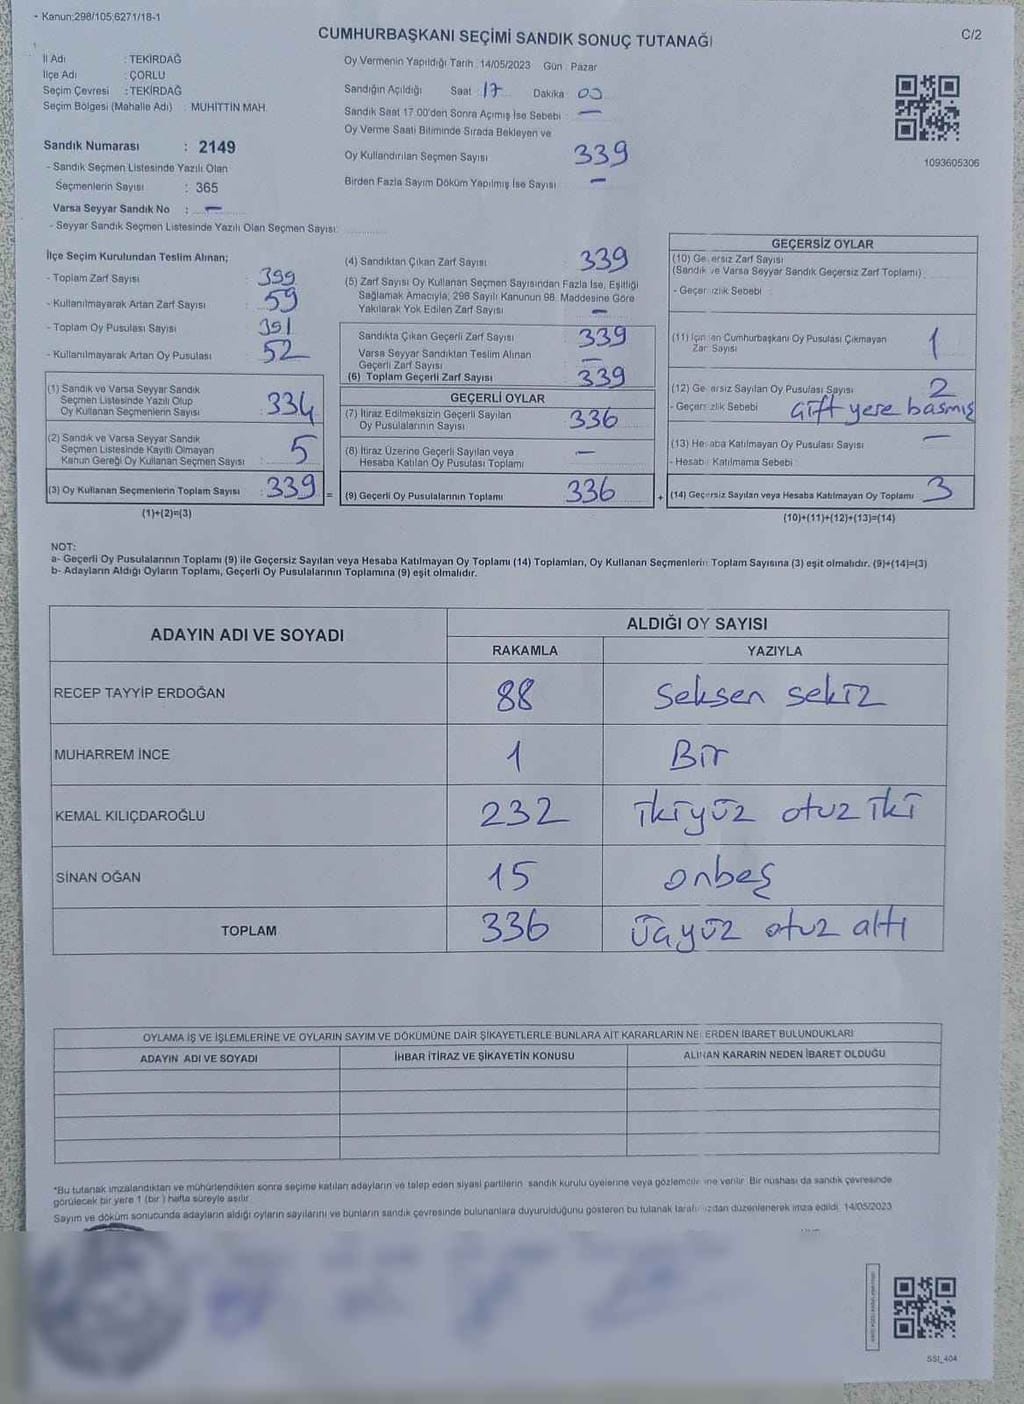 - Kanun:298/105,6271/18-1
CUMHURBAŞKANI SEÇİMİ SANDIK SONUÇ TUTANAĞI
C/2
İl Adı : TEKİRDAĞ
İlçe Adı : ÇORLU
Seçim Çevresi : TEKİRDAĞ
Seçim Bölgesi (Mahalle Adı) : MUHİTTİN MAH.
Sandık Numarası : 2149
- Sandık Seçmen Listesinde Yazılı Olan
Seçmenlerin Sayısı : 365
Varsa Seyyar Sandık No : -
- Seyyar Sandık Seçmen Listesinde Yazılı Olan Seçmen Sayısı:
Oy Vermenin Yapıldığı Tarih : 14/05/2023 Gün : Pazar
Sandığın Açıldığı Saat 17 Dakika 00
Sandık Saat 17:00'den Sonra Açımış İse Sebebi : -
Oy Verme Saati Bitiminde Sırada Bekleyen ve
Oy Kullandırılan Seçmen Sayısı 339
Birden Fazla Sayım Döküm Yapılmış İse Sayısı -
1093605306
İlçe Seçim Kurulundan Teslim Alınan;
- Toplam Zarf Sayısı : 399
- Kullanılmayarak Artan Zarf Sayısı : 59
- Toplam Oy Pusulası Sayısı : 391
- Kullanılmayarak Artan Oy Pusulası : 52
(1) Sandık ve Varsa Seyyar Sandık
Seçmen Listesinde Yazılı Olup
Oy Kullanan Seçmenlerin Sayısı : 334
(2) Sandık ve Varsa Seyyar Sandık
Seçmen Listesinde Kayıtlı Olmayan
Kanun Gereği Oy Kullanan Seçmen Sayısı : 5
(3) Oy Kullanan Seçmenlerin Toplam Sayısı : 339 =
(1)+(2)=(3)
(4) Sandıktan Çıkan Zarf Sayısı 339
(5) Zarf Sayısı Oy Kullanan Seçmen Sayısından Fazla İse, Eşitliği
Sağlamak Amacıyla, 298 Sayılı Kanunun 98. Maddesine Göre
Yakılarak Yok Edilen Zarf Sayısı -
Sandıkta Çıkan Geçerli Zarf Sayısı 339
Varsa Seyyar Sandıktan Teslim Alınan
Geçerli Zarf Sayısı -
(6) Toplam Geçerli Zarf Sayısı 339
GEÇERLİ OYLAR
(7) İtiraz Edilmeksizin Geçerli Sayılan
Oy Pusulalarının Sayısı 336
(8) İtiraz Üzerine Geçerli Sayılan veya
Hesaba Katılan Oy Pusulası Toplamı -
(9) Geçerli Oy Pusulalarının Toplamı 336 +
GEÇERSİZ OYLAR
(10) Geçersiz Zarf Sayısı
(Sandık ve Varsa Seyyar Sandık Geçersiz Zarf Toplamı)
- Geçersizlik Sebebi :
(11) İçinden Cumhurbaşkanı Oy Pusulası Çıkmayan
Zarf Sayısı 1
(12) Geçersiz Sayılan Oy Pusulası Sayısı 2
- Geçersizlik Sebebi Çift yere basmış
(13) Hesaba Katılmayan Oy Pusulası Sayısı -
- Hesaba Katılmama Sebebi
(14) Geçersiz Sayılan veya Hesaba Katılmayan Oy Toplamı 3
(10)+(11)+(12)+(13)=(14)
NOT:
a- Geçerli Oy Pusulalarının Toplamı (9) ile Geçersiz Sayılan veya Hesaba Katılmayan Oy Toplamı (14) Toplamları, Oy Kullanan Seçmenlerin Toplam Sayısına (3) eşit olmalıdır. (9)+(14)=(3)
b- Adayların Aldığı Oyların Toplamı, Geçerli Oy Pusulalarının Toplamına (9) eşit olmalıdır.
ADAYIN ADI VE SOYADI ALDIĞI OY SAYISI
RAKAMLA YAZIYLA
RECEP TAYYİP ERDOĞAN 88 Seksen sekiz
MUHARREM İNCE 1 Bir
KEMAL KILIÇDAROĞLU 232 ikiyüz otuz iki
SİNAN OĞAN 15 onbeş
TOPLAM 336 üçyüz otuz altı
OYLAMA İŞ VE İŞLEMLERİNE VE OYLARIN SAYIM VE DÖKÜMÜNE DAİR ŞİKAYETLERLE BUNLARA AİT KARARLARIN NELERDEN İBARET BULUNDUKLARI
ADAYIN ADI VE SOYADI İHBAR İTİRAZ VE ŞİKAYETİN KONUSU ALINAN KARARIN NEDEN İBARET OLDUĞU
*Bu tutanak imzalandıktan ve mühürlendikten sonra seçime katılan adayların ve talep eden siyasi partilerin sandık kurulu üyelerine veya gözlemcilerine verilir. Bir nüshası da sandık çevresinde
görülecek bir yere 1 (bir) hafta süreyle asılır.
Sayım ve döküm sonucunda adayların aldığı oyların sayılarını ve bunların sandık çevresinde bulunanlara duyurulduğunu gösteren bu tutanak tarafımızdan düzenlenerek imza edildi. 14/05/2023
SSI_404